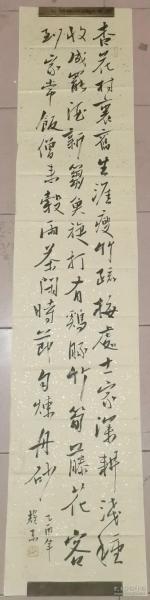 杏花村裏舊生涯瘦竹疏梅處士家深耕淺種
收成罷酒新篘魚旋打有鷄豚竹筍藤花客
到家常飯僧來穀雨茶閒時節自煉丹砂
乙酉年